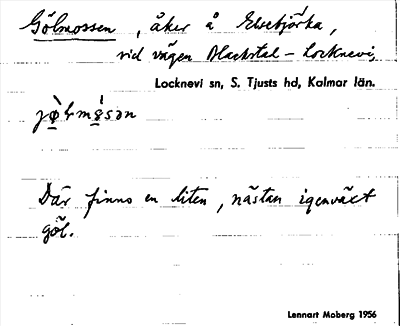 Gölmossen, åker å Elsebjörka,
vid vägen Blackstal - Locknevi,
Locknevi sn, S. Tjusts hd, Kalmar län.
Där finns en liten, nästan igenväxt
göl.
Lennart Moberg 1956